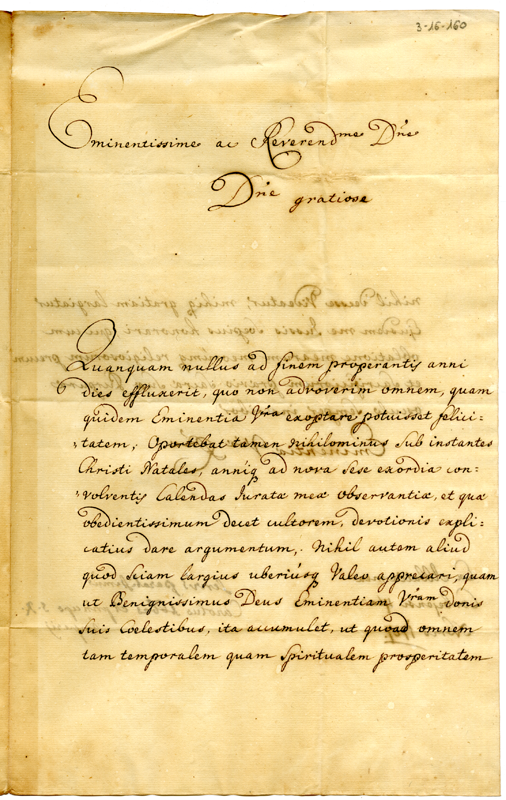 3-16-160
Eminentissime ac Reverendme Dne
Dne gratiose
Quanquam nullus ad finem properantis anni
dies effluxerit, quo non advoverim omnem, quam
quidem Eminentia Vra exoptare potuisset felici:
tatem; Oportebat tamen nihilominus sub instantes
Christi Natales, anniq ad nova sese exordia con:
volventis Calendas Iuratæ meæ observantiæ, et quæ
obedientissimum decet cultorem, devotionis expli:
catius dare argumentum. Nihil autem aliud
quod sciam largius uberiúsq Valeo apprecari, quam
ut Benignissimus Deus Eminentiam Vram donis
suis Coelestibus, ita accumulet, ut quoad omnem
tam temporalem quam spiritualem prosperitatem